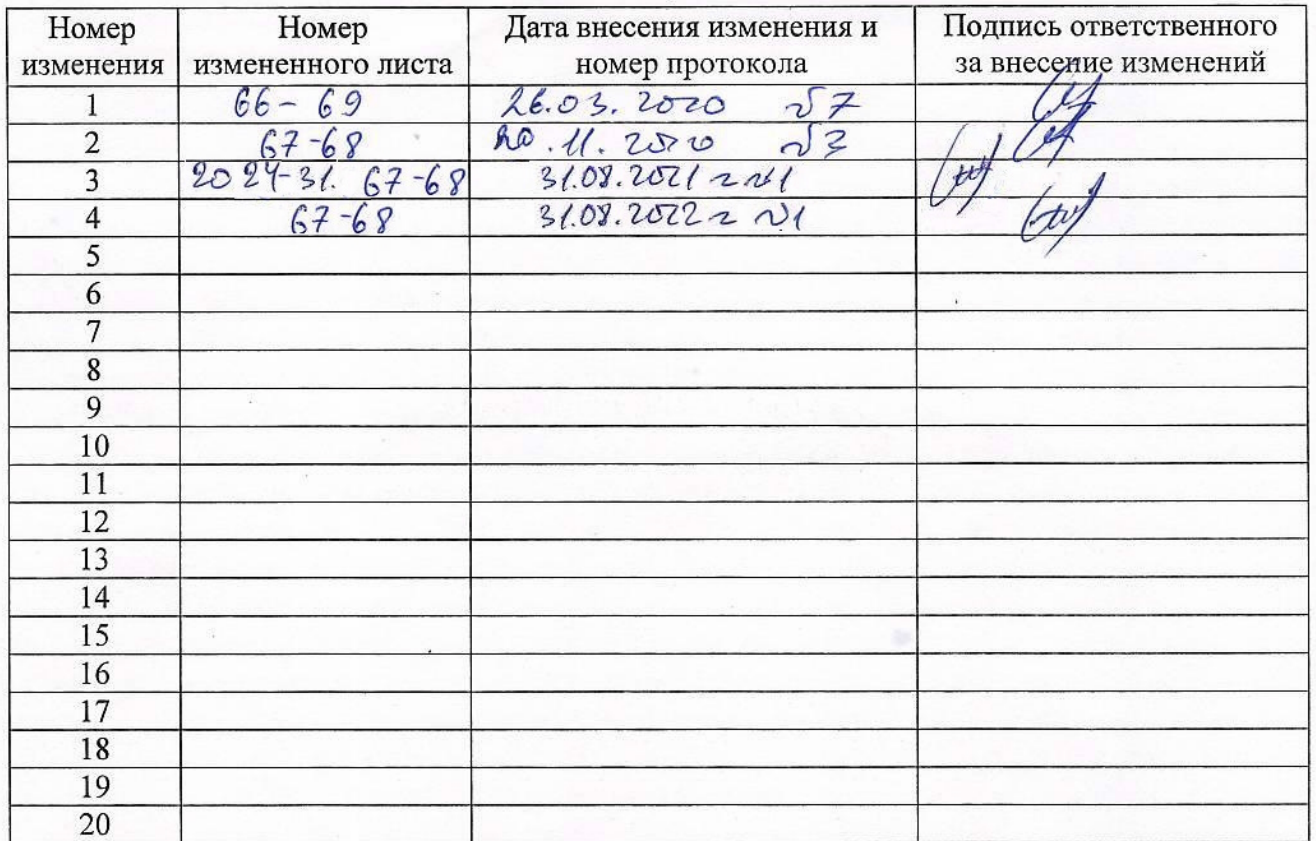 Номер изменения Номер измененного листа Дата внесения изменения и номер протокола Подпись ответственного за внесение изменений
1 66-69 26.03.2020 №7
2 67-68 20.11.2020 №3
3 20 24-31. 67-68 31.08.2021 г №1
4 67-68 31.08.2022 г №1
5
6
7
8
9
10
11
12
13
14
15
16
17
18
19
20